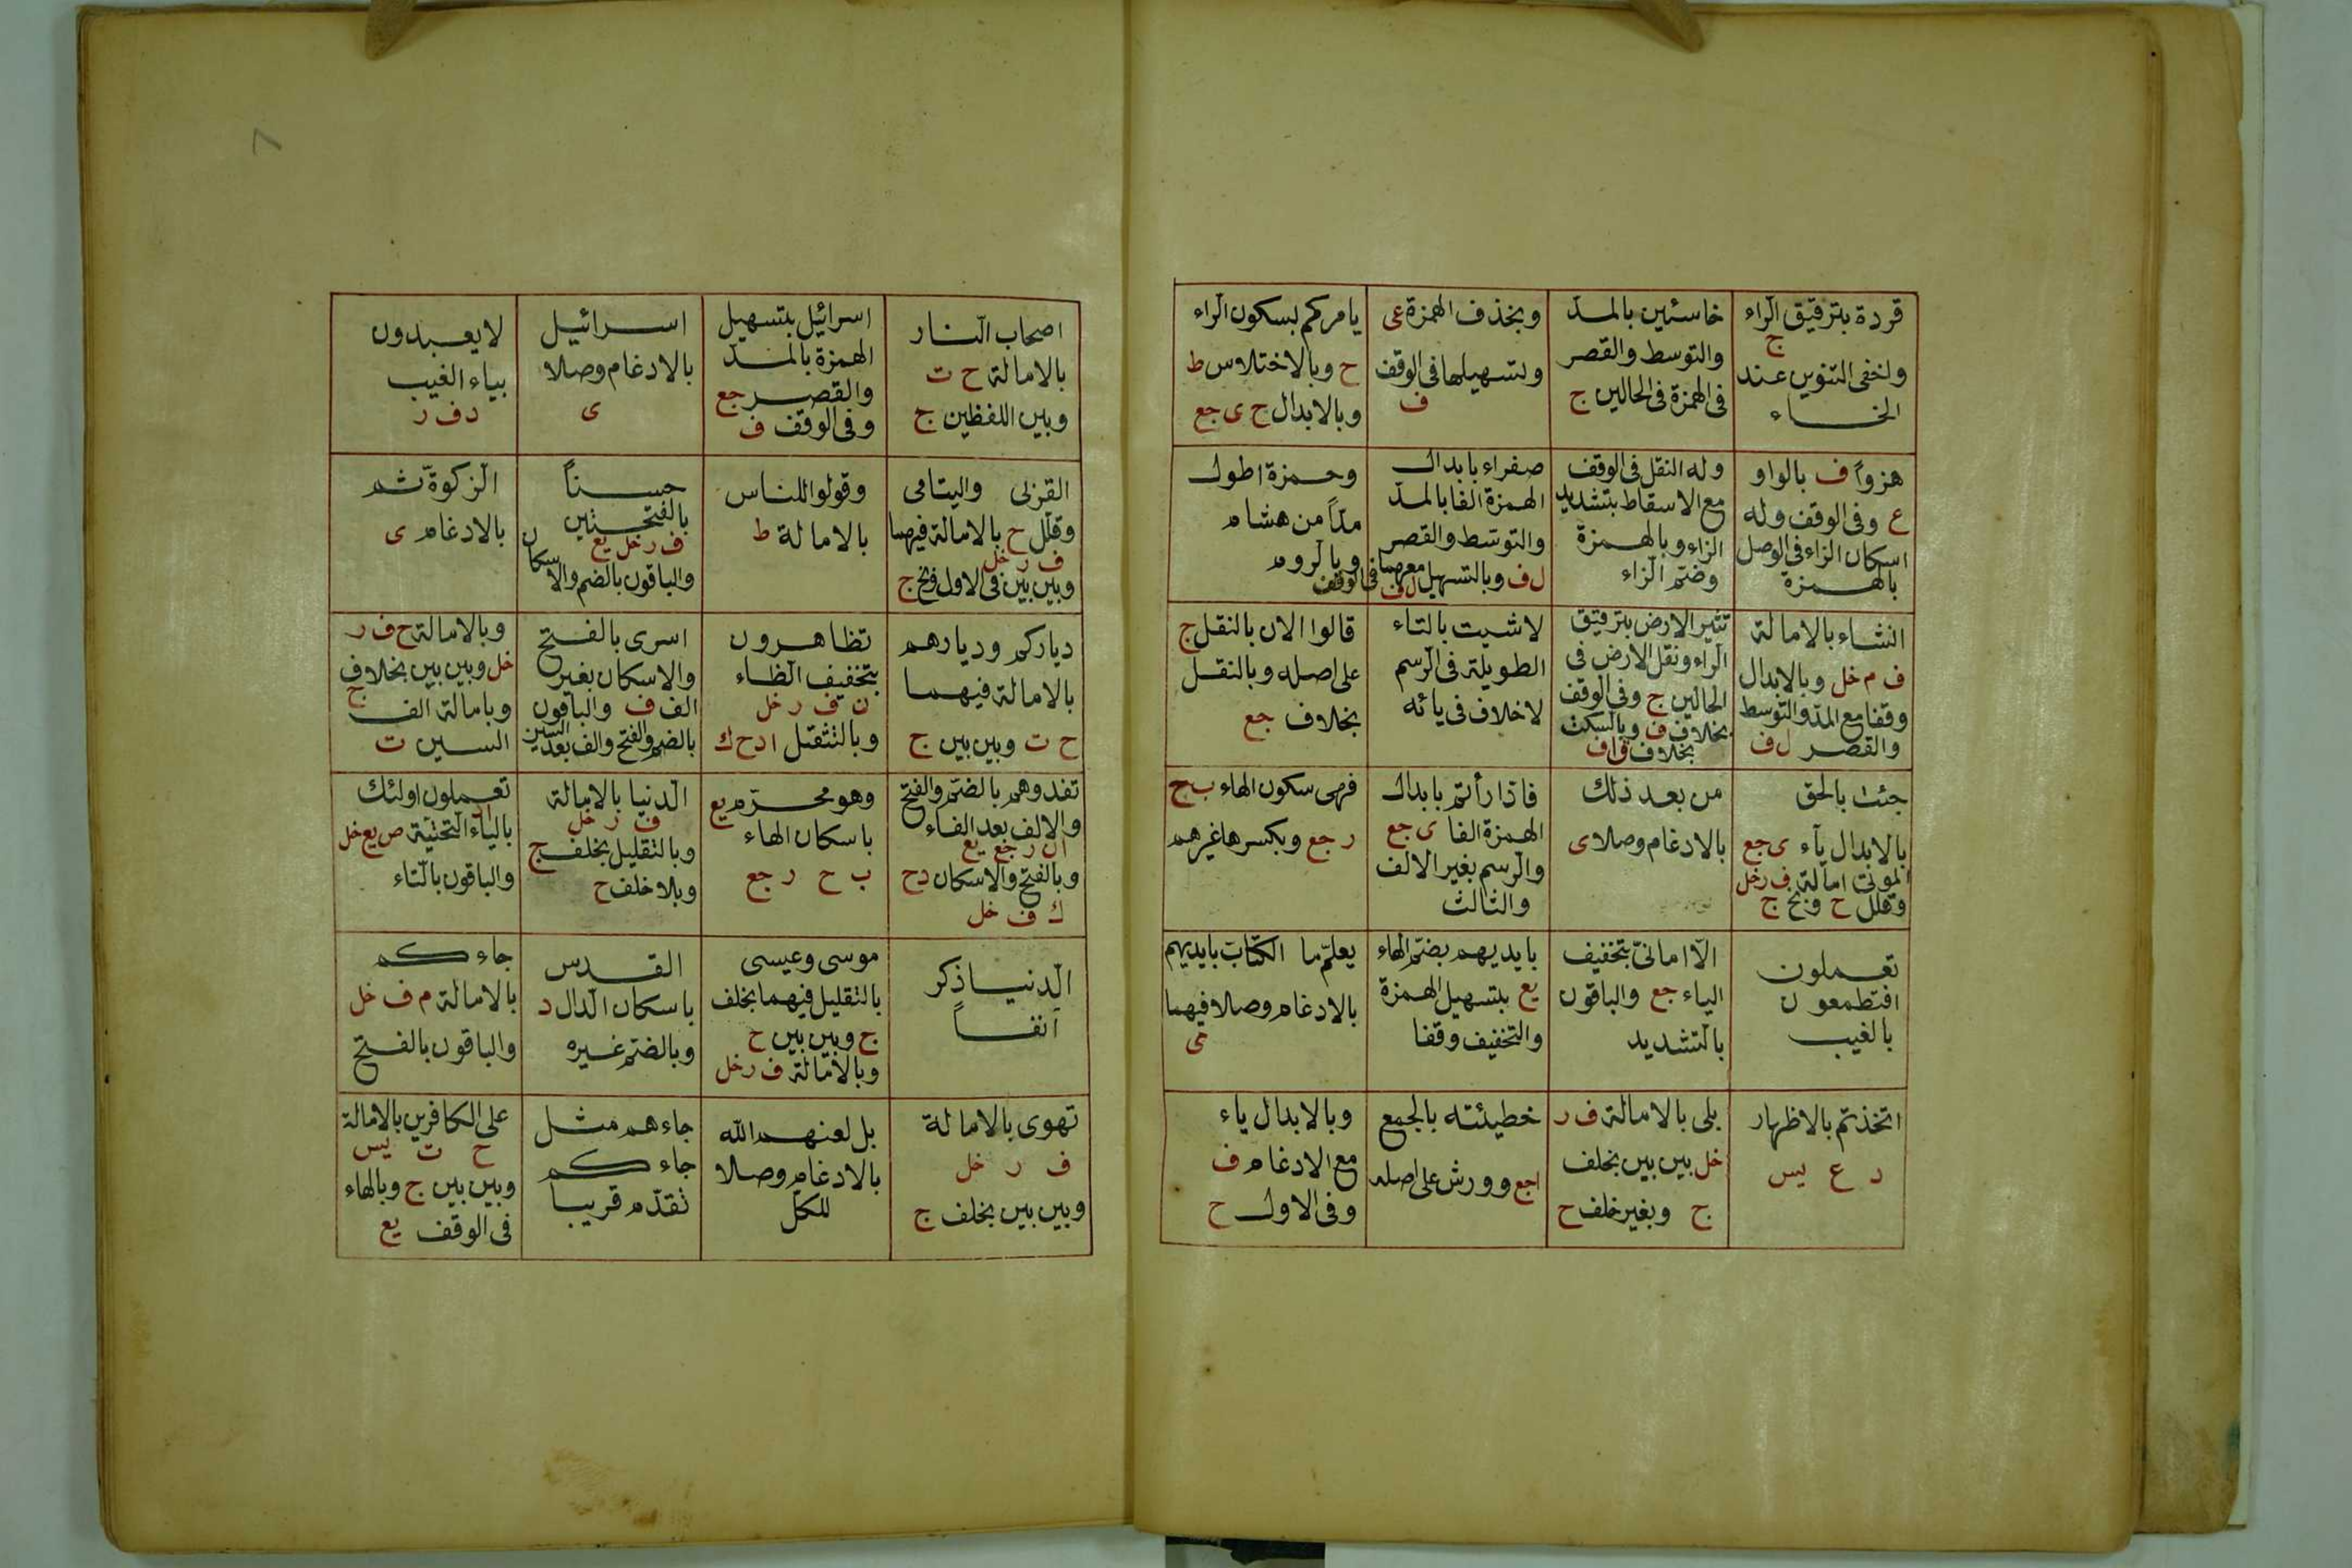 قردة بترقيق الراء
ج
واخفى التنوين عند
الخاء
خاسئين بالمد
والتوسط والقصر
فى الهمزة فى الحالين ج
وبخذف الهمزة عى
وتسهيلها فى الوقف
ف
يامركم بسكون الراء
ح وبالاختلاس ط
وبالابدال ح ى جع
هزواً ف بالواو
ع وفى الوقف وله
اسكان الزاء فى الوصل
بالهمزة
وله النقل فى الوقف
مع الاسقاط بتشديد
الزاء وبالهمزة
وضم الزاء
صفراء بابدال
الهمزة الفا بالمد
والتوسط والقصر
ل ف وبالتسهيل معهما
ل ف فى الوقف
وحمزة اطول
مداً من هشام
وبالروم
انشاء بالامالة
ف م خل وبالابدال
وقفا مع المد والتوسط
والقصر ل ف
تثير الارض بترقيق
الراء ونقل الارض فى
الحالين ج وفى الوقف
بخلاف ف وبالسكت
بخلاف ق اف
لاشيت بالتاء
الطويلة فى الرسم
لاخلاف فى يائه
قالوا الان بالنقل ج
على اصله وبالنقل
بخلاف جع
جئت بالحق
بالابدال ياء ى جع
الموتى امالة ف ر خل
وقلل ح وبخ ج
من بعد ذلك
بالادغام وصلا ى
فاذا رأتم بابدال
الهمزة الفا ى جع
والرسم بغير الالف
والثالث
فهى سكون الهاء ب ح
ر جع وبكسرها غيرهم
تعملون
افتطمعون
بالغيب
الا امانىّ بتخفيف
الياء جع والباقون
بالتشديد
بايديهم بضم الهاء
يع بتسهيل الهمزة
والتخفيف وقفا
يعلم ما الكتاب بايديهم
بالادغام وصلا فيهما
ى
اتخذتم بالاظهار
د ع يس
بلى بالامالة ف ر
خل بين بين بخلف
ج وبغير خلف ح
خطيئته بالجمع
اجع وورش على اصله
وبالابدال ياء
مع الادغام ف
وفى الاول ح
اصحاب النار
بالامالة ح ت
وبين اللفظين ج
اسرائيل بتسهيل
الهمزة بالمد
والقصر جع
وفى الوقف ف
اسرائيل
بالادغام وصلا
ى
لايعبدون
بياء الغيب
د ف ر
القربى واليتامى
وقلل ح بالامالة فيهما
ف ر خل
وبين بين فى الاول وبخ ج
وقولوا للناس
بالامالة ط
حسناً
بالفتحتين
ف ر خل يع
والباقون بالضم والاسكان
الزكوة ثم
بالادغام ى
دياركم وديارهم
بالامالة فيهما
ح ت وبين بين ج
تظاهرون
بتخفيف الظاء
ن ف ر خل
وبالتثقيل ا د ح ك
اسرى بالفتح
والاسكان بغير
الف ف والباقون
بالضم والفتح والف بعد السين
وبالامالة ح ف ر
خل وبين بين بخلاف
ج
وبامالة الف
السين ت
تفدوهم بالضم والفتح
والالف بعد الفاء
ا ن ر جع يع
وبالفتح والاسكان د ح
ك ف خل
وهو محرم يع
باسكان الهاء
ب ح ر جع
الدنيا بالامالة
ف ر خل
وبالتقليل بخلف ج
وبلا خلف ح
تعملون اولئك
بالياء التحتية ا د ص يع خل
والباقون بالتاء
الدنيا ذكر
انفاً
موسى وعيسى
بالتقليل فيهما بخلف
ج وبين بين ح
وبالامالة ف ر خل
القدس
باسكان الدال د
وبالضم غيره
جاءكم
بالامالة م ف خل
والباقون بالفتح
تهوى بالامالة
ف ر خل
وبين بين بخلف ج
بل لعنهم الله
بالادغام وصلا
للكل
جاءهم مثل
جاءكم
تقدم قريبا
على الكافرين بالامالة
ح ت يس
وبين بين ج وبالهاء
فى الوقف يع